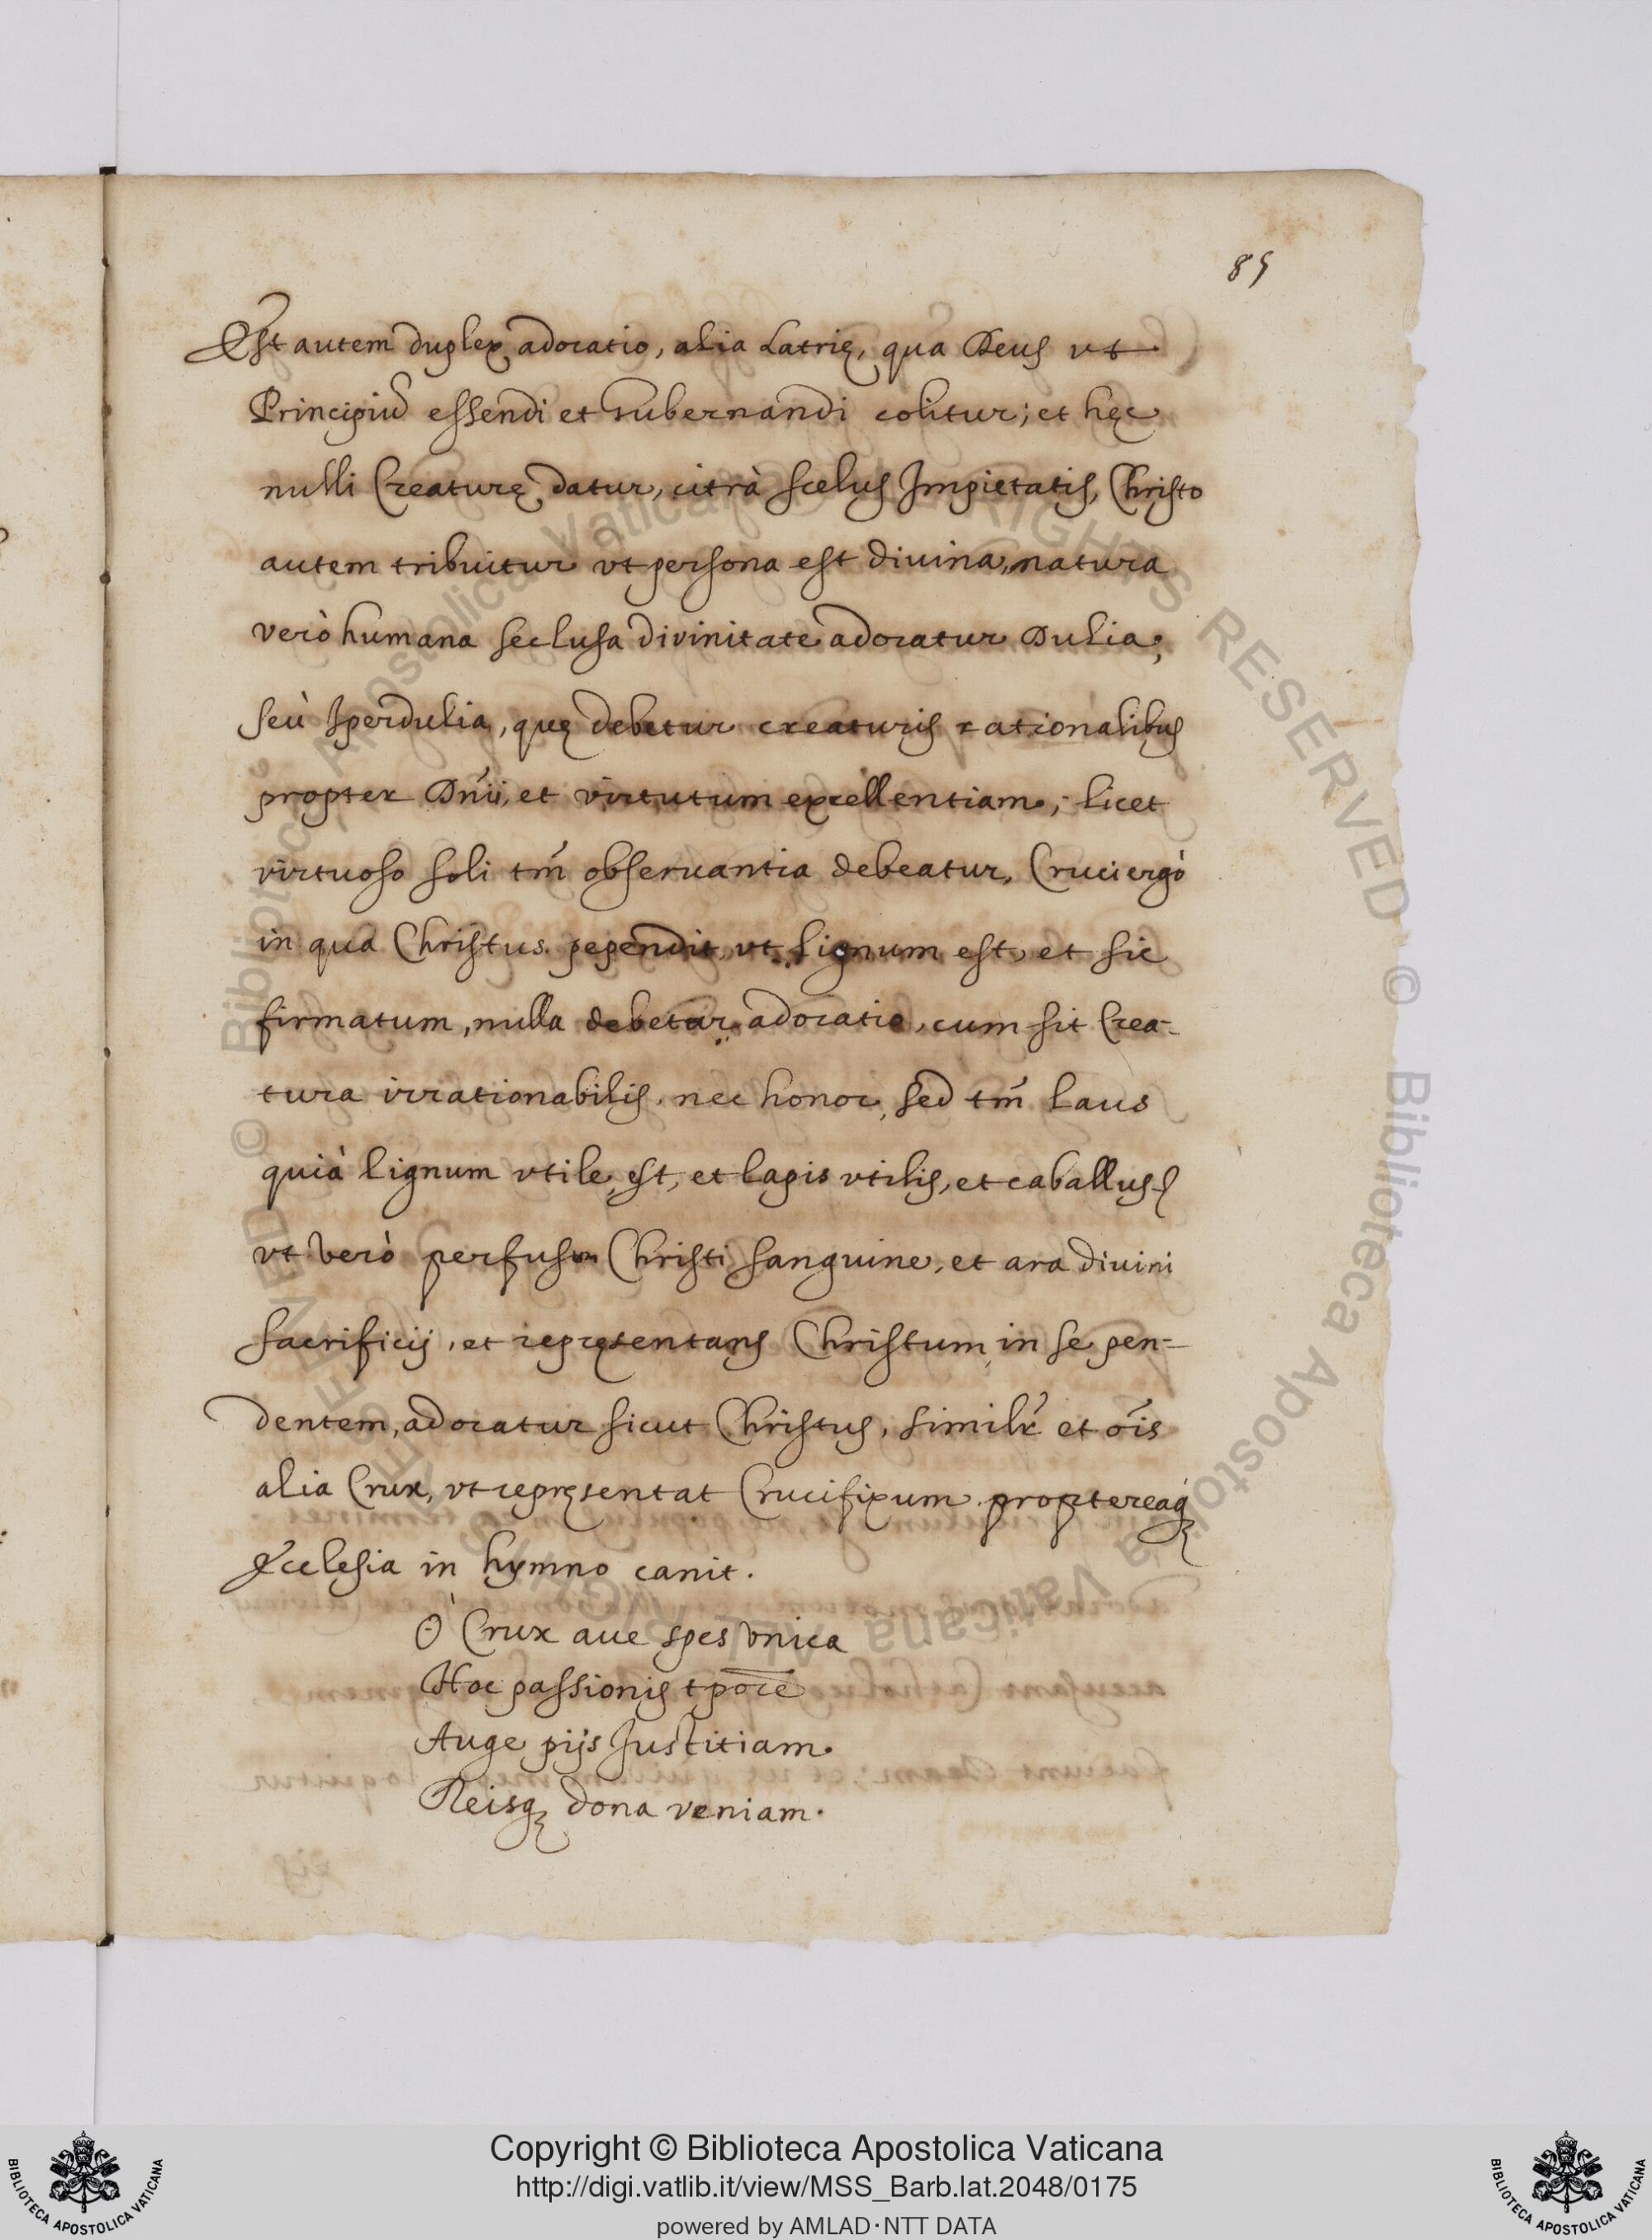 85
Est autem duplex adoratio, alia Latrię, qua Deus vt
Principiũ essendi et Gubernandi colitur; et hęc
nulli Creaturę datur, citrà scelus Impietatis, Christo
autem tribuitur vt persona est diuina, natura
verò humana seclusa divinitate adoratur Dulia,
seù Iperdulia, quę debetur creaturis rationalibus
propter Dñij, et virtutum excellentiam; licet
virtuoso soli tm̃ obseruantia debeatur, Cruci ergò
in qua Christus pependit, vt lignum est, et sic
firmatum, nulla debetur adoratio, cum sit Crea-
tura irrationabilis, nec honor, sed tm̃ laus
quià lignum vtile est, et lapis vtilis, et caballus
vt verò perfusum Christi sanguine, et ara diuini
sacrificij, et repręsentans Christum in se pen-
dentem, adoratur sicut Christus, similr̃ et oĩs
alia Crux, vt repręsentat Crucifixum proptereaq́
Ecclesia in hymno canit.
Ò Crux aue spes vnica
Hoc passionis tpõre
Auge pijs Iustitiam
Reisq dona veniam.
© Biblioteca Apostolica Vaticana ALL RIGHTS RESERVED © Biblioteca Apostolica Vaticana ALL RIGHTS RESERVED
Copyright © Biblioteca Apostolica Vaticana
http://digi.vatlib.it/view/MSS_Barb.lat.2048/0175
powered by AMLAD·NTT DATA
BIBLIOTECA APOSTOLICA VATICANA
BIBLIOTECA APOSTOLICA VATICANA